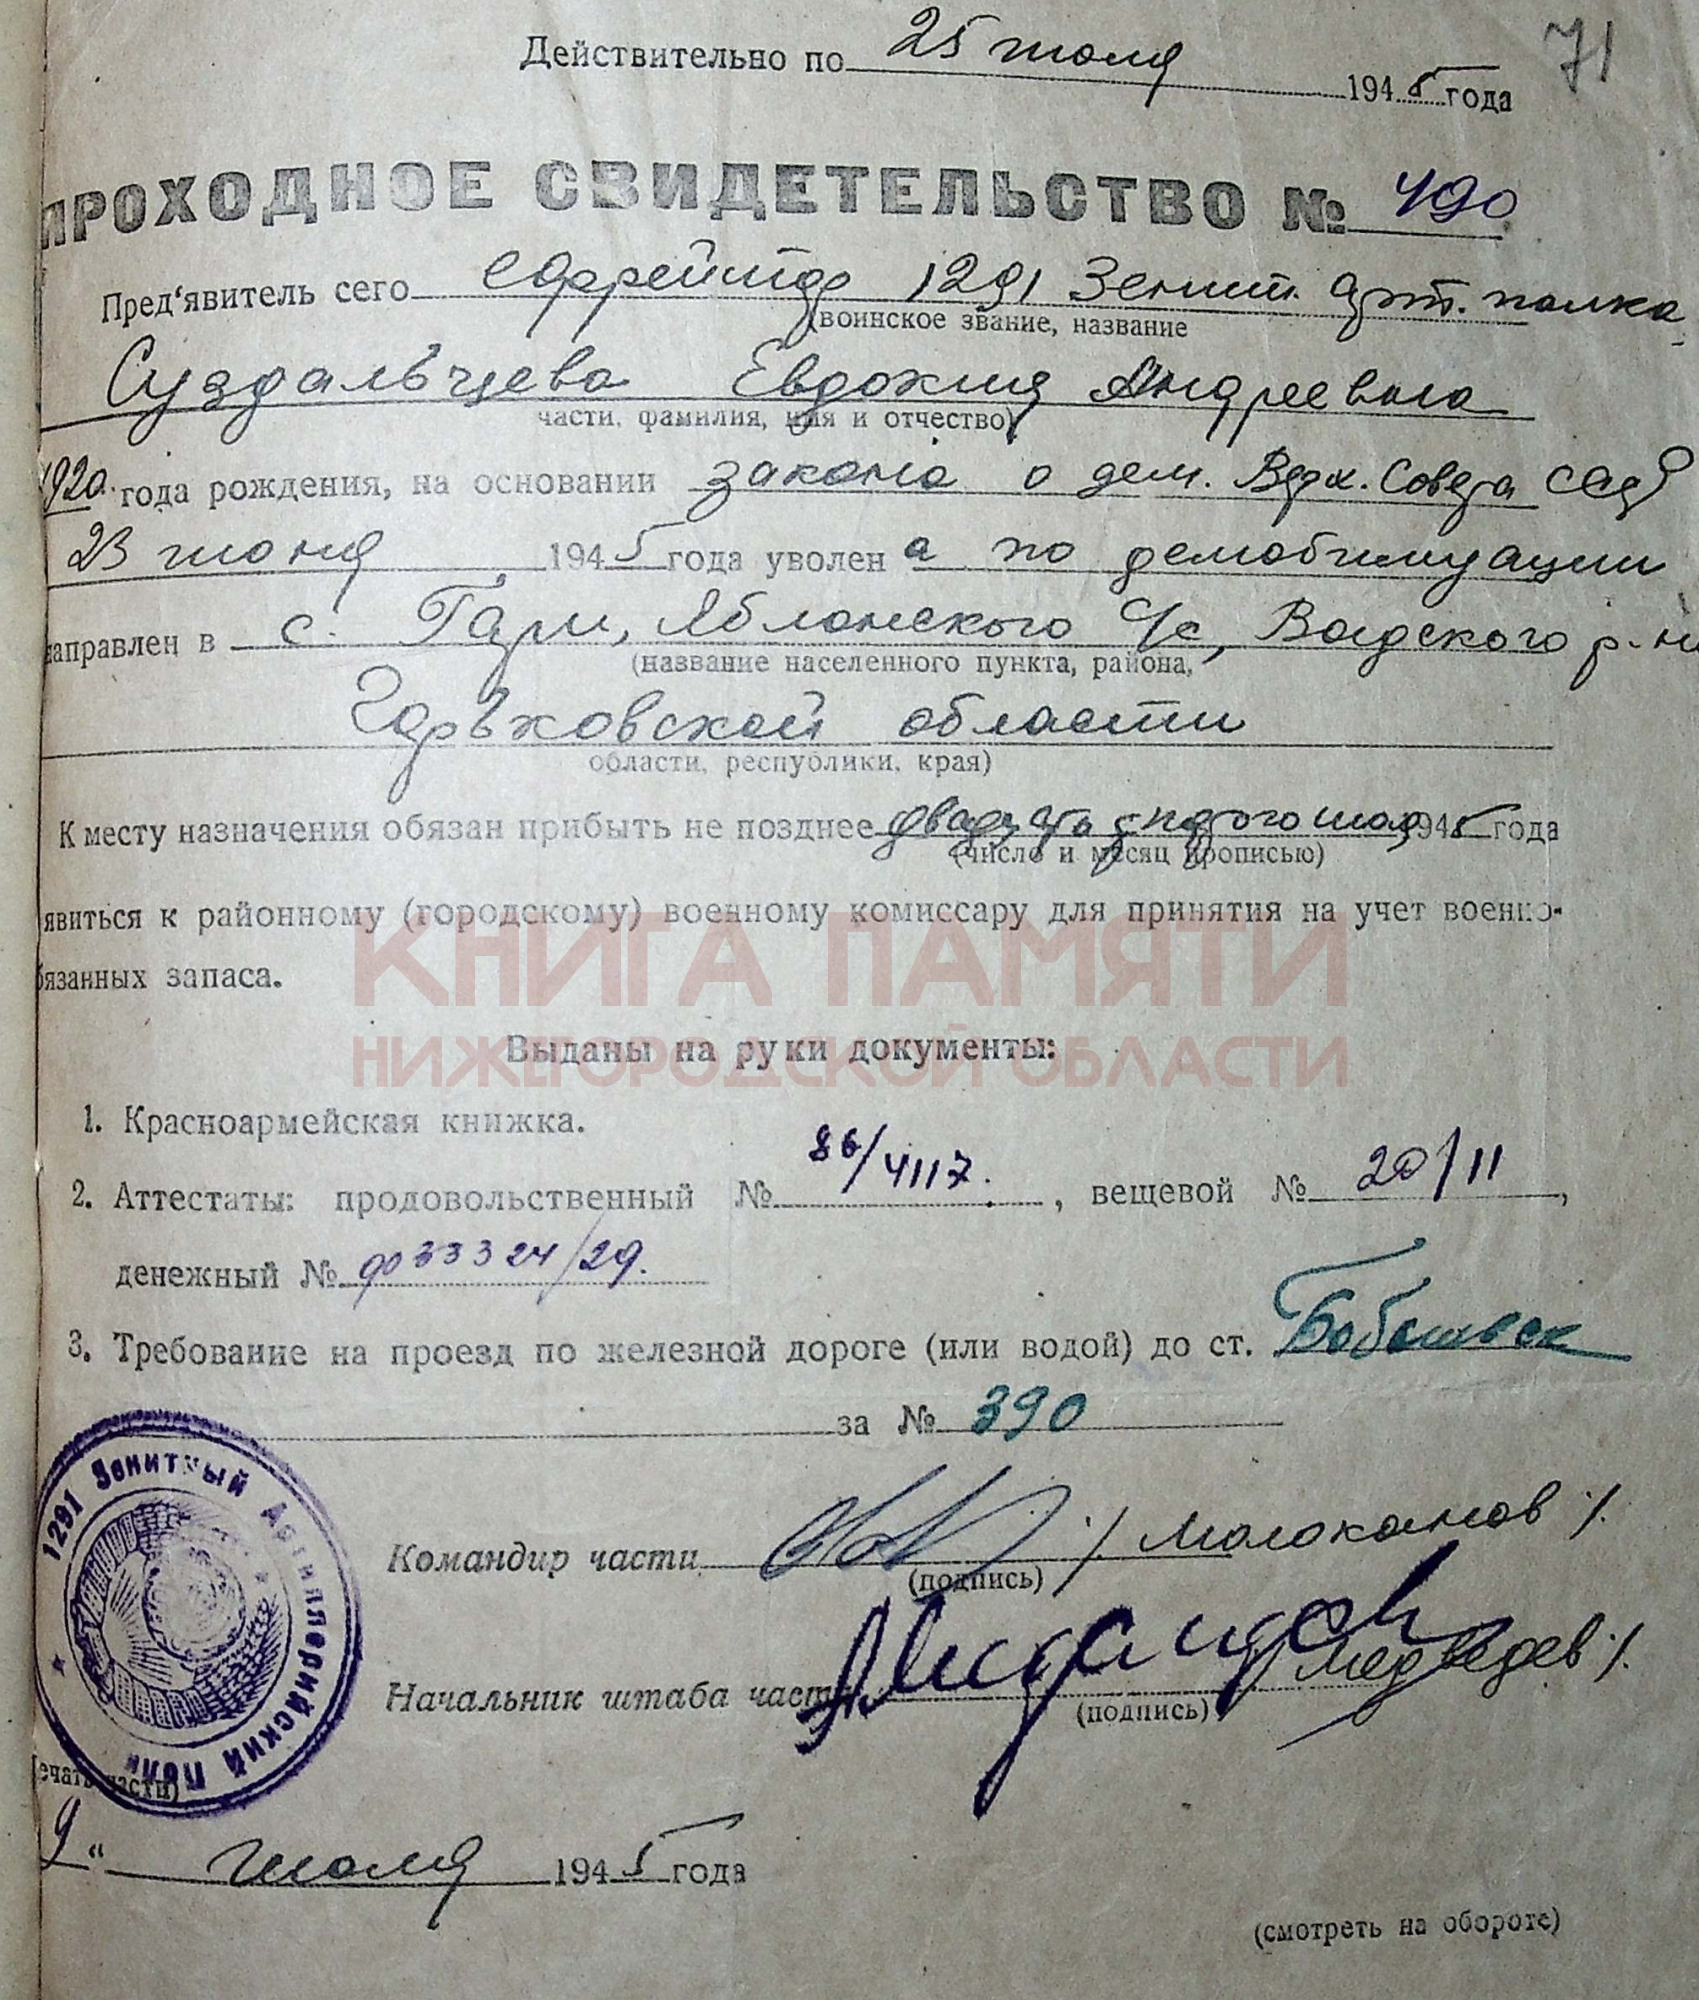 71
Действительно по 25 июля 1945 года
ПРОХОДНОЕ СВИДЕТЕЛЬСТВО № 490
Пред'явитель сего ефрейтор 1291 Зенит. Арт. полка
(воинское звание, название
Суздальцева Евдокия Андреевна
части, фамилия, имя и отчество)
1920 года рождения, на основании закона о дем. Верх. Совета СССР
23 июня 1945 года уволена по демобилизации
направлен в с. Гари, Яблонского с/с, Вадского р-на
(название населенного пункта, района,
Горьковской области
области, республики, края)
К месту назначения обязан прибыть не позднее двадцать пятого июля 1945 года
(число и месяц прописью)
явиться к районному (городскому) военному комиссару для принятия на учет военно-
бязанных запаса.
КНИГА ПАМЯТИ
НИЖЕГОРОДСКОЙ ОБЛАСТИ
Выданы на руки документы:
1. Красноармейская книжка.
2. Аттестаты: продовольственный № 86/4117. , вещевой № 20/11,
денежный № 333324/29.
3. Требование на проезд по железной дороге (или водой) до ст.
за № 390
1291 Зенитный Артиллерийский Полк
Командир части /Молоканов/.
(подпись)
Начальник штаба части /Медведев/.
(подпись)
(печать части)
9 " июля 1945 года
(смотреть на обороте)